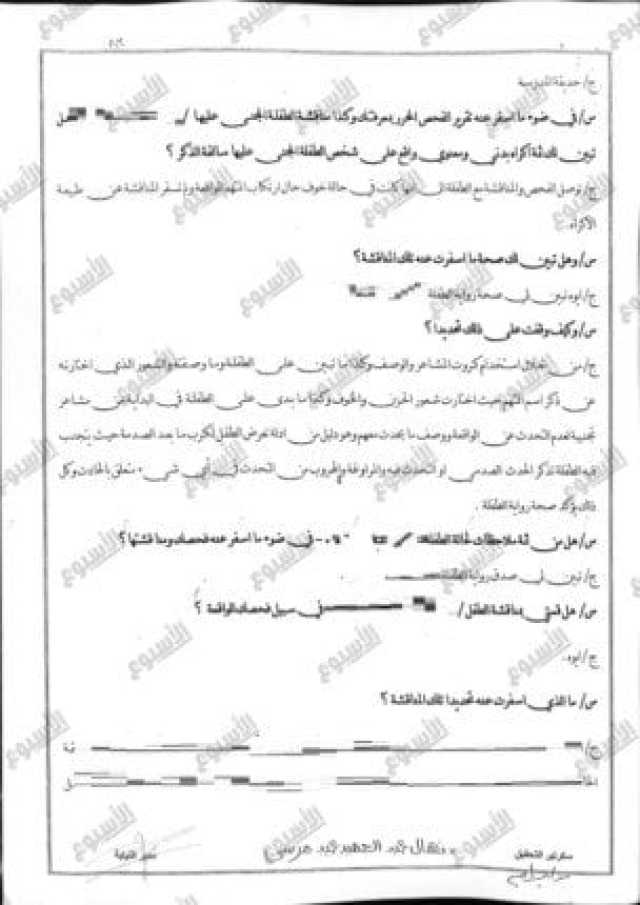 ج/ حديقة المدرسة
س/ في ضوء ما اسفر عنه تقرير الفحص المحرر بمعرفتك وكذا مناقشة الطفلة المجنى عليها /
تبين لك ثمة اكراه بدني ومعنوي واقع على شخص الطفلة المجنى عليها سالفة الذكر ؟
ج/ توصل الفحص والمناقشة مع الطفلة الى انها كانت في حالة خوف حال ارتكاب المتهم الواقعة ولم تسفر المناقشة عن طبيعة
الاكراه.
س/ وهل تبين لك صحة ما اسفرت عنه تلك المناقشة؟
ج/ ايوه تبين لى صحة رواية الطفلة
س/ وكيف وقفت على ذلك تحديدا ؟
ج/ من خلال استخدام كروت المشاعر والوصف وكذا ما تبين على الطفلة وما وصفته والشعور الذي اختارته
عن ذكر اسم المتهم حيث اختارت شعور الحزن والخوف وكذا ما بدى على الطفلة في البداية من مشاعر
تجنبية بعدم التحدث عن الواقعة ووصف ما يحدث معهم وهو دليل من ادلة تعرض الطفل لكرب ما بعد الصدمة حيث يتجنب
فيه الطفلة تذكر الحدث الصدمي او التحدث فيه والمراوغة والهروب من التحدث في أي شيء متعلق بالحادث وكل
ذلك يؤكد صحة رواية الطفلة .
س/ هل من ثمة ملاحظات لحالة الطفلة في ضوء ما اسفر عنه فحصك ومناقشتها ؟
ج/ تبين لى صدق رواية الطفلة
س/ هل قمتي بمناقشة الطفل / في سبيل فحصك الواقعة ؟
ج/ ايوه.
س/ ما الذي اسفرت عنه تحديدا تلك المناقشة ؟
ج/
سكرتير التحقيق
مدير النيابة
الأسبوع